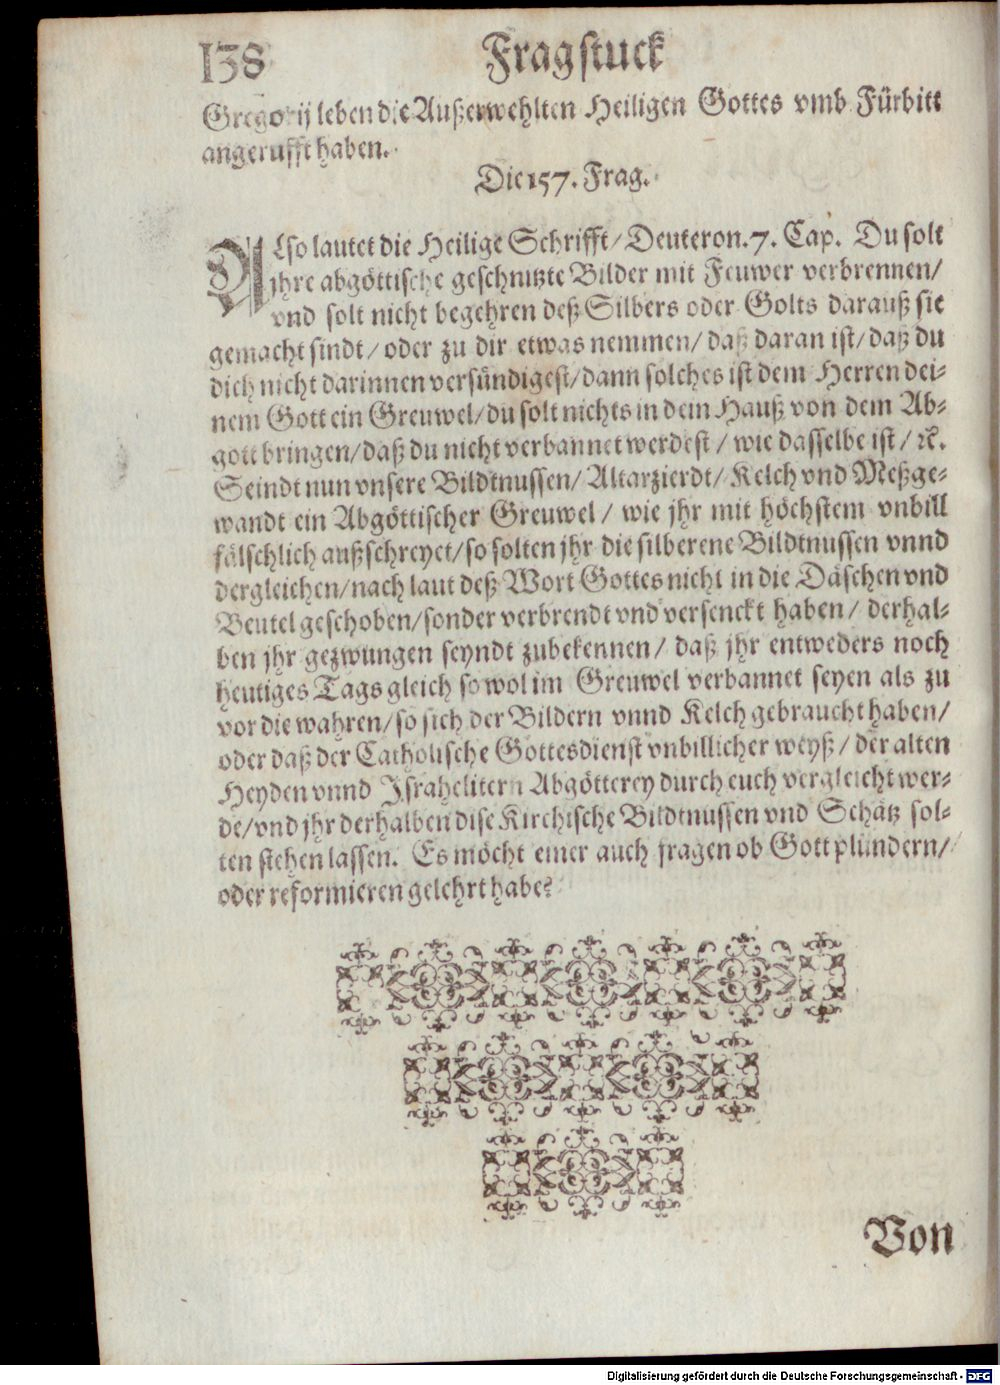 138 Fragstuck
Gregorij leben die Außerwehlten Heiligen Gottes vmb Fürbitt
angerufft haben.
Die 157. Frag.
ALso lautet die Heilige Schrifft/ Deuteron. 7. Cap. Du solt
jhre abgöttische geschnitzte Bilder mit Feuwer verbrennen/
vnd solt nicht begehren deß Silbers oder Golts darauß sie
gemacht sindt/ oder zu dir etwas nemmen/ daß daran ist/ daß du
dich nicht darinnen versündigest/ dann solches ist dem Herren dei-
nem Gott ein Greuwel/ du solt nichts in dein Hauß von dem Ab-
gott bringen/ daß du nicht verbannet werdest/ wie dasselbe ist/ ꝛc.
Seindt nun vnsere Bildtnussen/ Altarzierdt/ Kelch vnd Meßge-
wandt ein Abgöttischer Greuwel/ wie jhr mit höchstem vnbill
fälschlich außschreyet/ so solten jhr die silberene Bildtnussen vnnd
dergleichen/ nach laut deß Wort Gottes nicht in die Däschen vnd
Beutel geschoben/ sonder verbrendt vnd versenckt haben/ derhal-
ben jhr gezwungen seyndt zubekennen/ daß jhr entweders noch
heutiges Tags gleich so wol im Greuwel verbannet seyen als zu
vor die wahren/ so sich der Bildern vnnd Kelch gebraucht haben/
oder daß der Catholische Gottesdienst vnbillicher weyß/ der alten
Heyden vnnd Israhelitern Abgötterey durch euch vergleicht wer-
de/ vnd jhr derhalben dise Kirchische Bildtnussen vnd Schätz sol-
ten stehen lassen. Es möcht einer auch fragen ob Gott plündern/
oder reformieren gelehrt habe?
Von
Digitalisierung gefördert durch die Deutsche Forschungsgemeinschaft - DFG